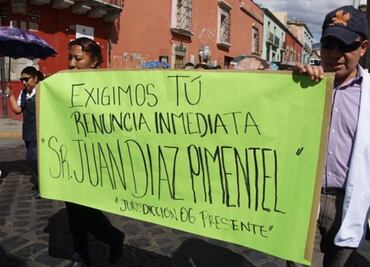 EXIGIMOS TÚ
RENUNCIA INMEDIATA
"SR. JUAN DIAZ PIMENTEL"
"JURISDICCIÓN 06 PRESENTE"